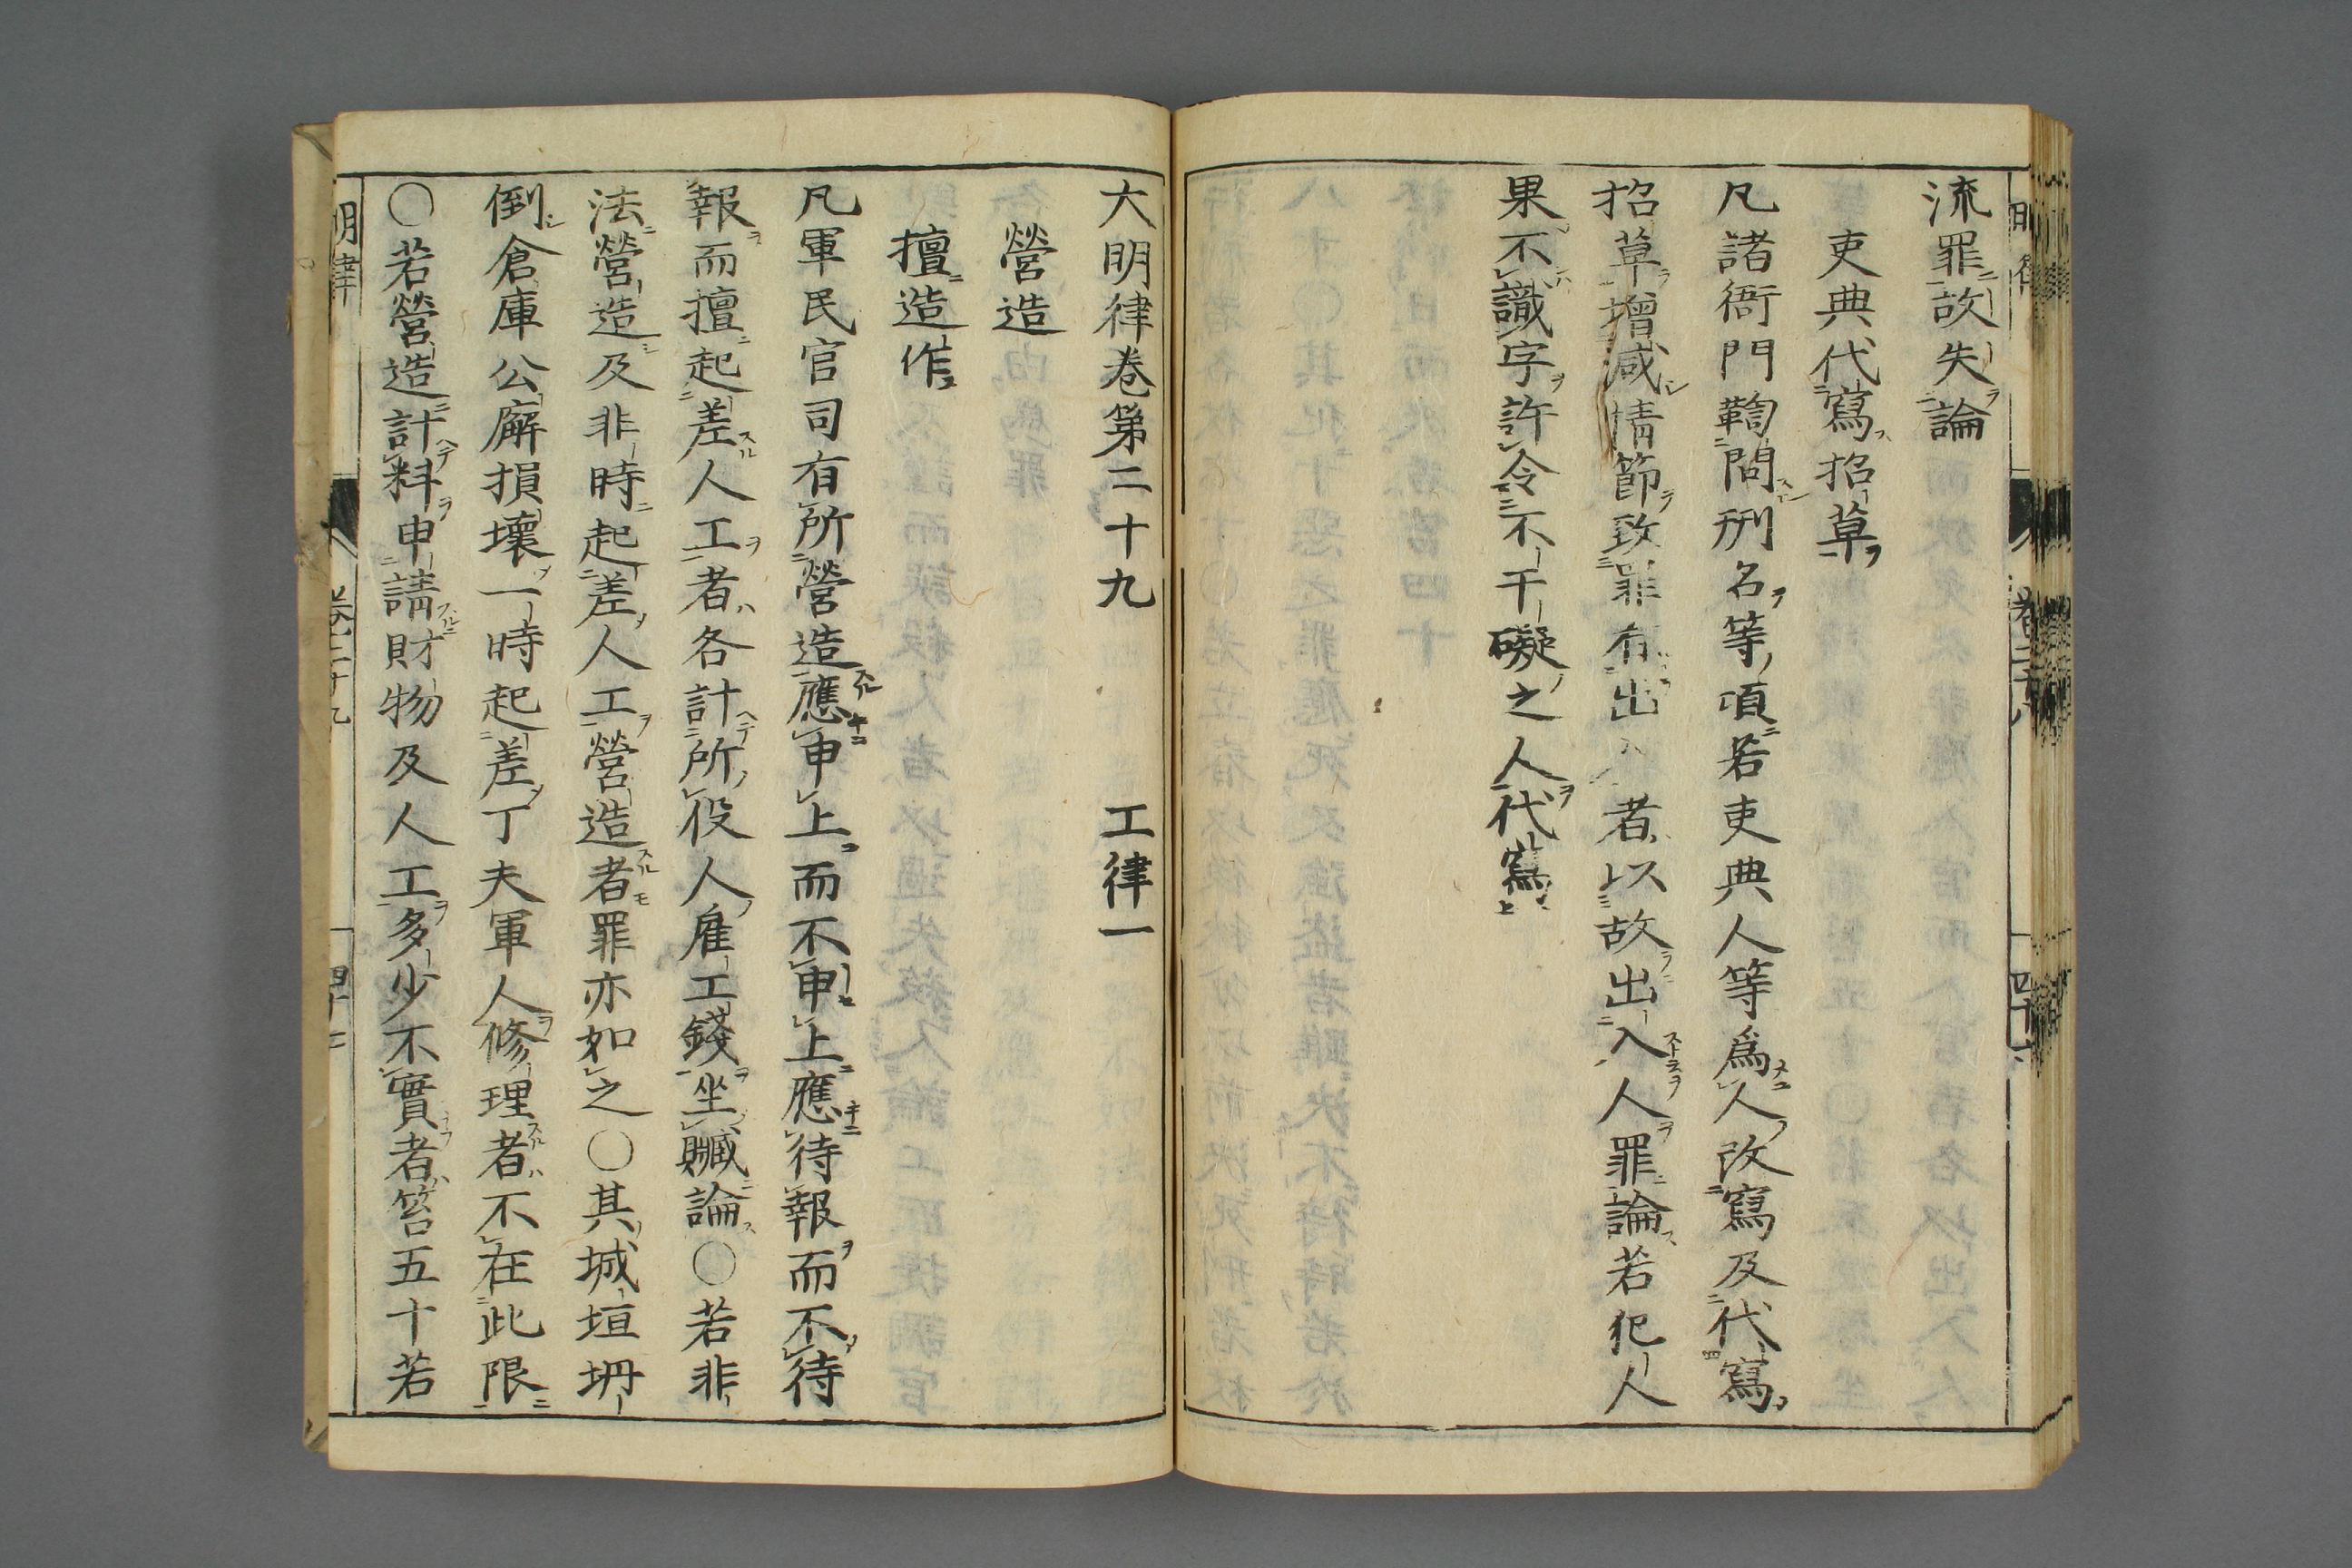 流罪故失論
吏典代寫招草
凡諸衙門鞫問刑名等項若吏典人等爲人改寫及代寫
招草增減情節致罪有出入者以故出入人罪論若犯人
果不識字許令不干礙之人代寫
大明律卷第二十九 工律一
營造
擅造作
凡軍民官司有所營造應申上而不申上應待報而不待
報而擅起差人工者各計所役人雇工錢坐贓論〇若非
法營造及非時起差人工營造者罪亦如之〇其城垣坍
倒倉庫公廨損壞一時起差丁夫軍人修理者不在此限
〇若營造計料申請財物及人工多少不實者笞五十若
明律 卷二十九